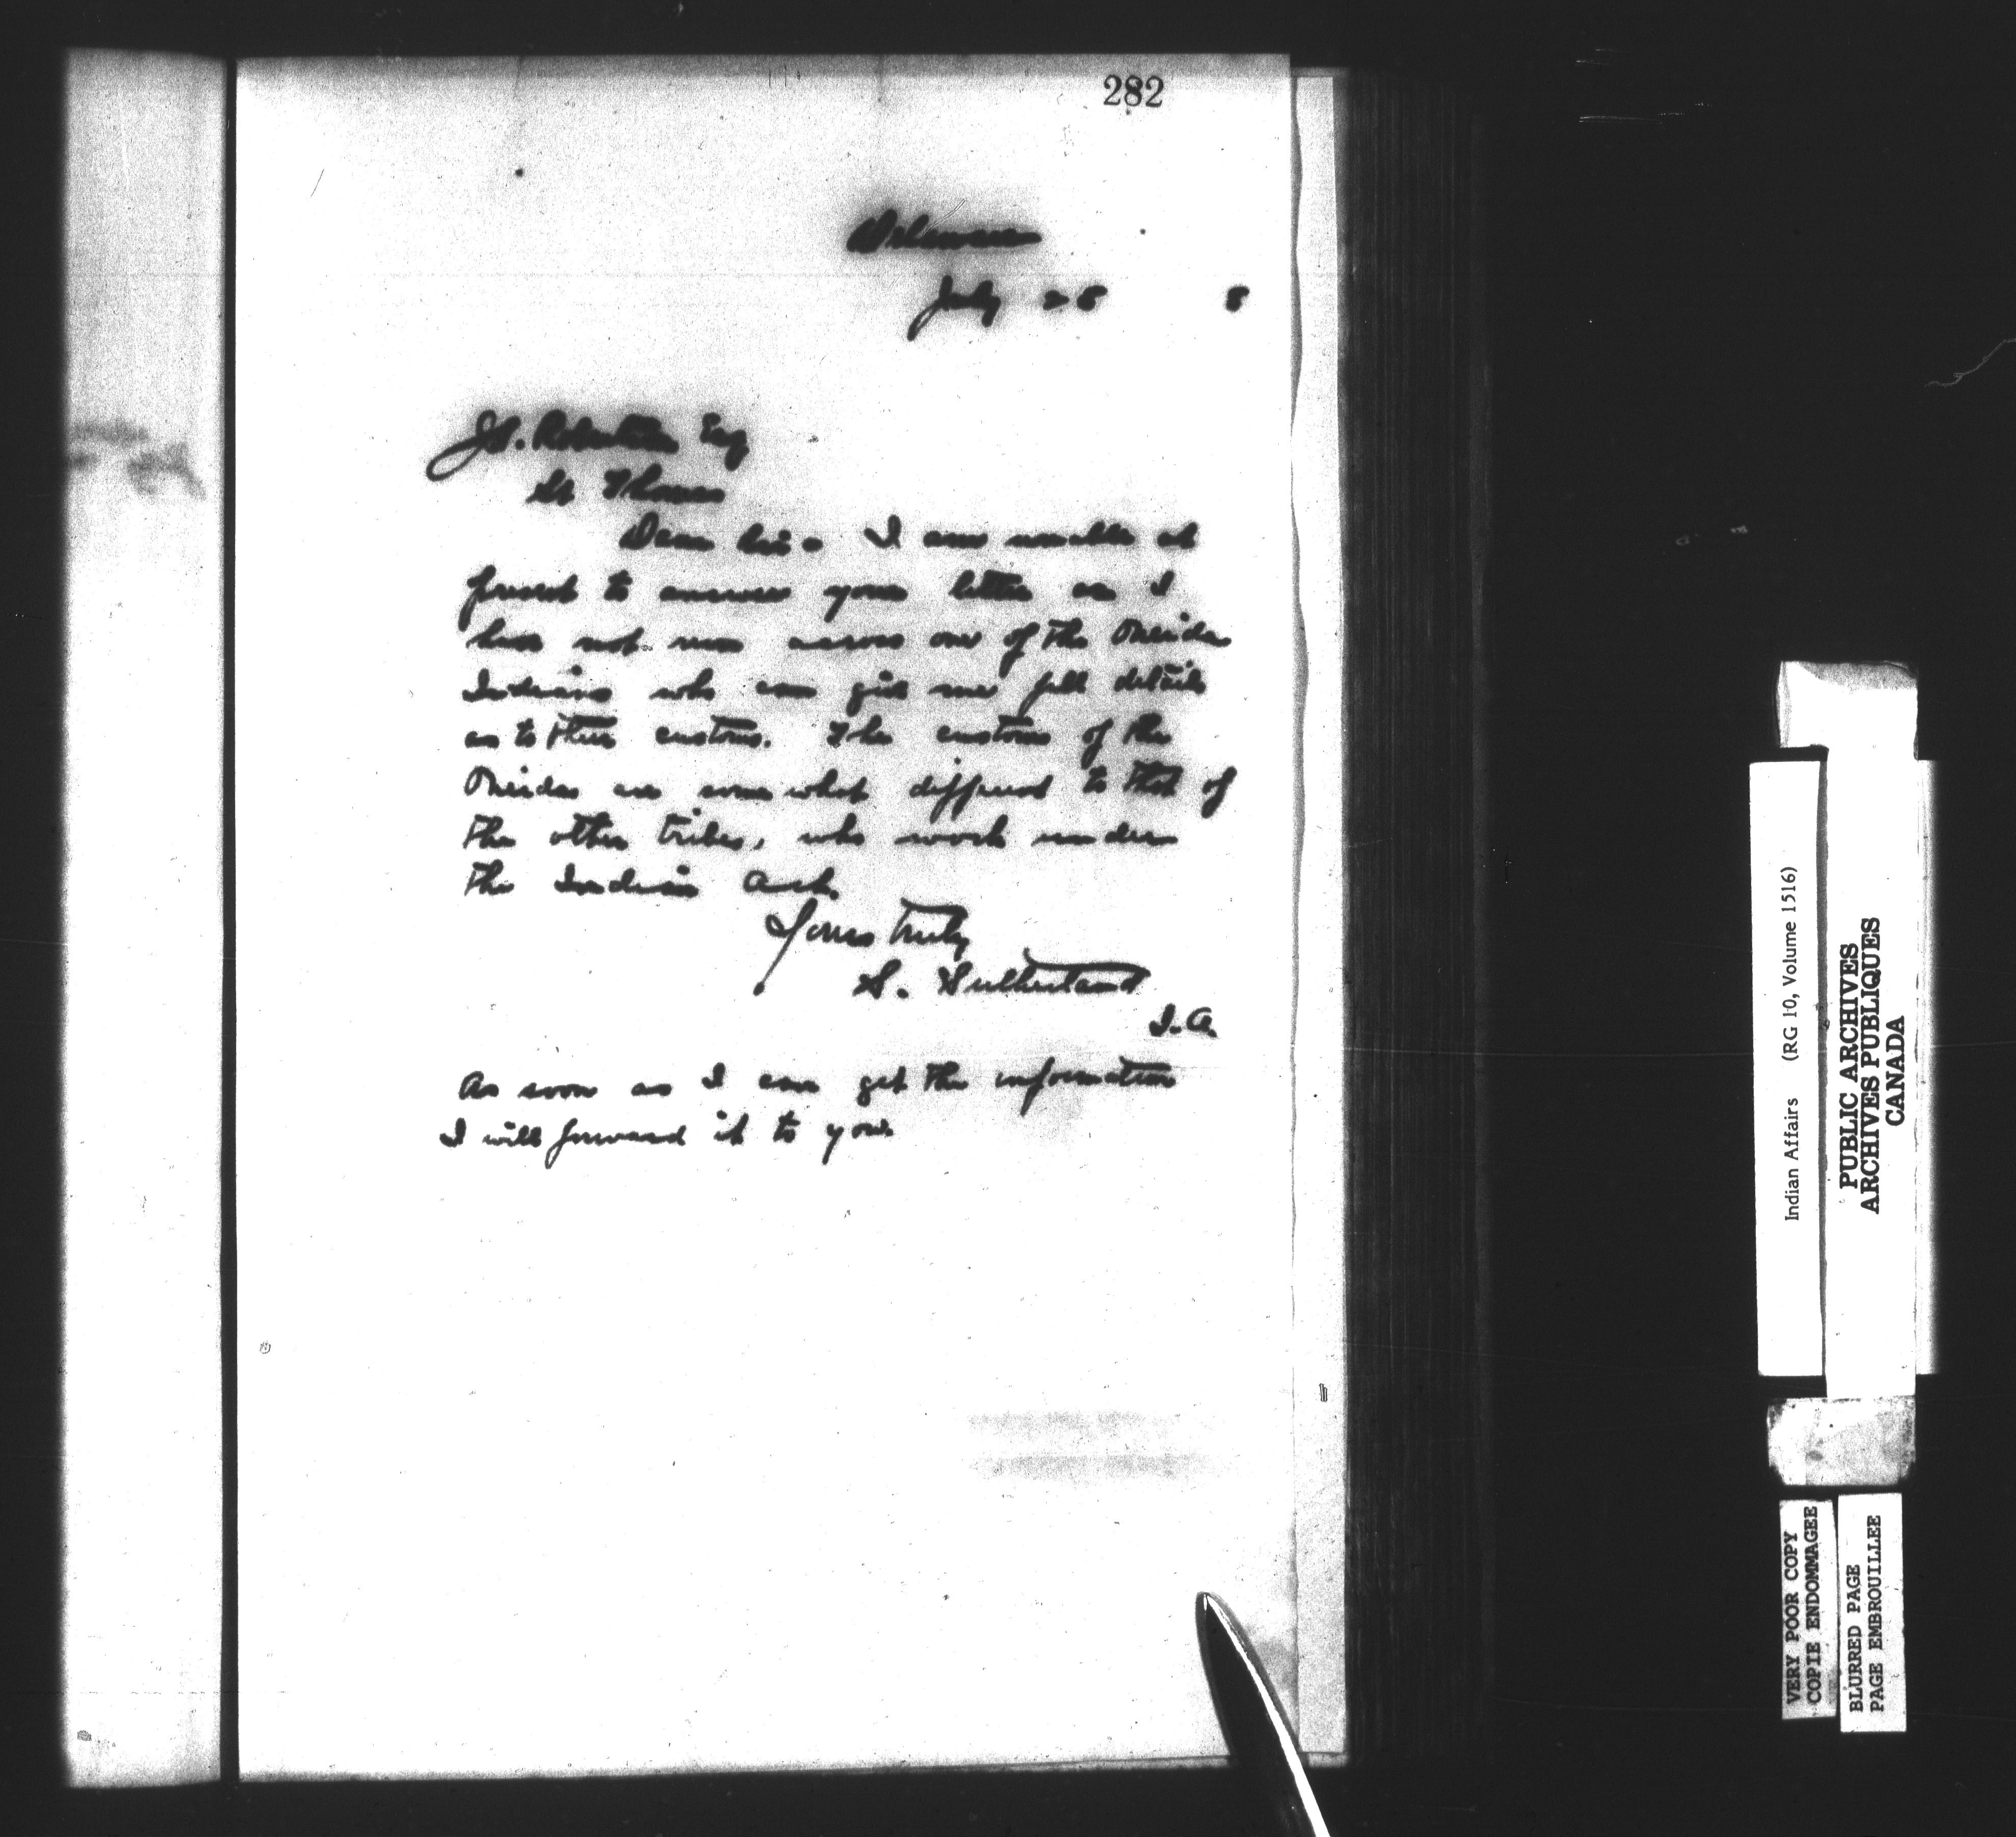 282
Delaware
July 28 8
J.S. Robertson Esq
St Thomas
Dear Sir. I am unable at
present to answer your letter as I
have not run across one of the Oneida
Indians who can give me full details
as to their customs. The customs of the
Oneidas are somewhat different to that of
the other tribes, who work under
the Indian Act.
Yours truly
S. Sutherland
I.A.
As soon as I can get the information
I will forward it to you.
Indian Affairs (RG 10, Volume 1516)
PUBLIC ARCHIVES
ARCHIVES PUBLIQUES
CANADA
VERY POOR COPY
COPIE ENDOMMAGEE
BLURRED PAGE
PAGE EMBROUILLEE